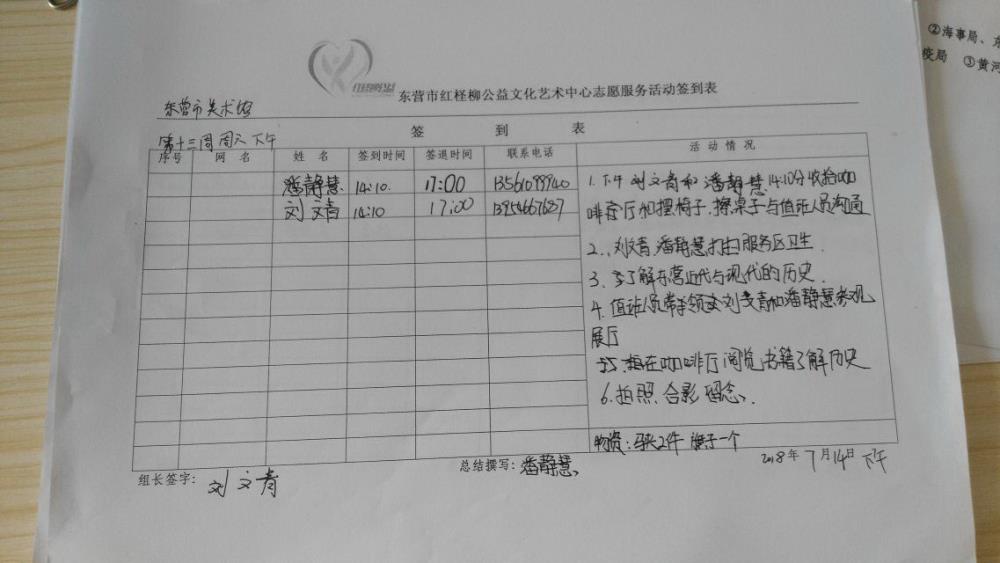 ②海事局、东
疫局 ③黄河
红柽柳公益
东营市红柽柳公益文化艺术中心志愿服务活动签到表
东营市美术馆
第十三周 周六 下午
签 到 表
序号 网 名 姓 名 签到时间 签退时间 联系电话 活 动 情 况
潘静慧 14:10 17:00 13561099940
刘文青 14:10 17:00 13954667687
1. 下午 刘文青和潘静慧 14:10分收拾咖
啡餐厅和摆椅子、擦桌子与值班人员沟通
2、刘文青、潘静慧打扫服务区卫生.
3. 了解东营近代与现代的历史.
4. 值班人员带领刘文青和潘静慧参观
展厅
5. 在咖啡厅阅览书籍了解历史
6. 拍照 合影 留念、
物资:马夹2件 旗子一个
组长签字: 刘文青
总结撰写: 潘静慧
2018年 7月14日 下午